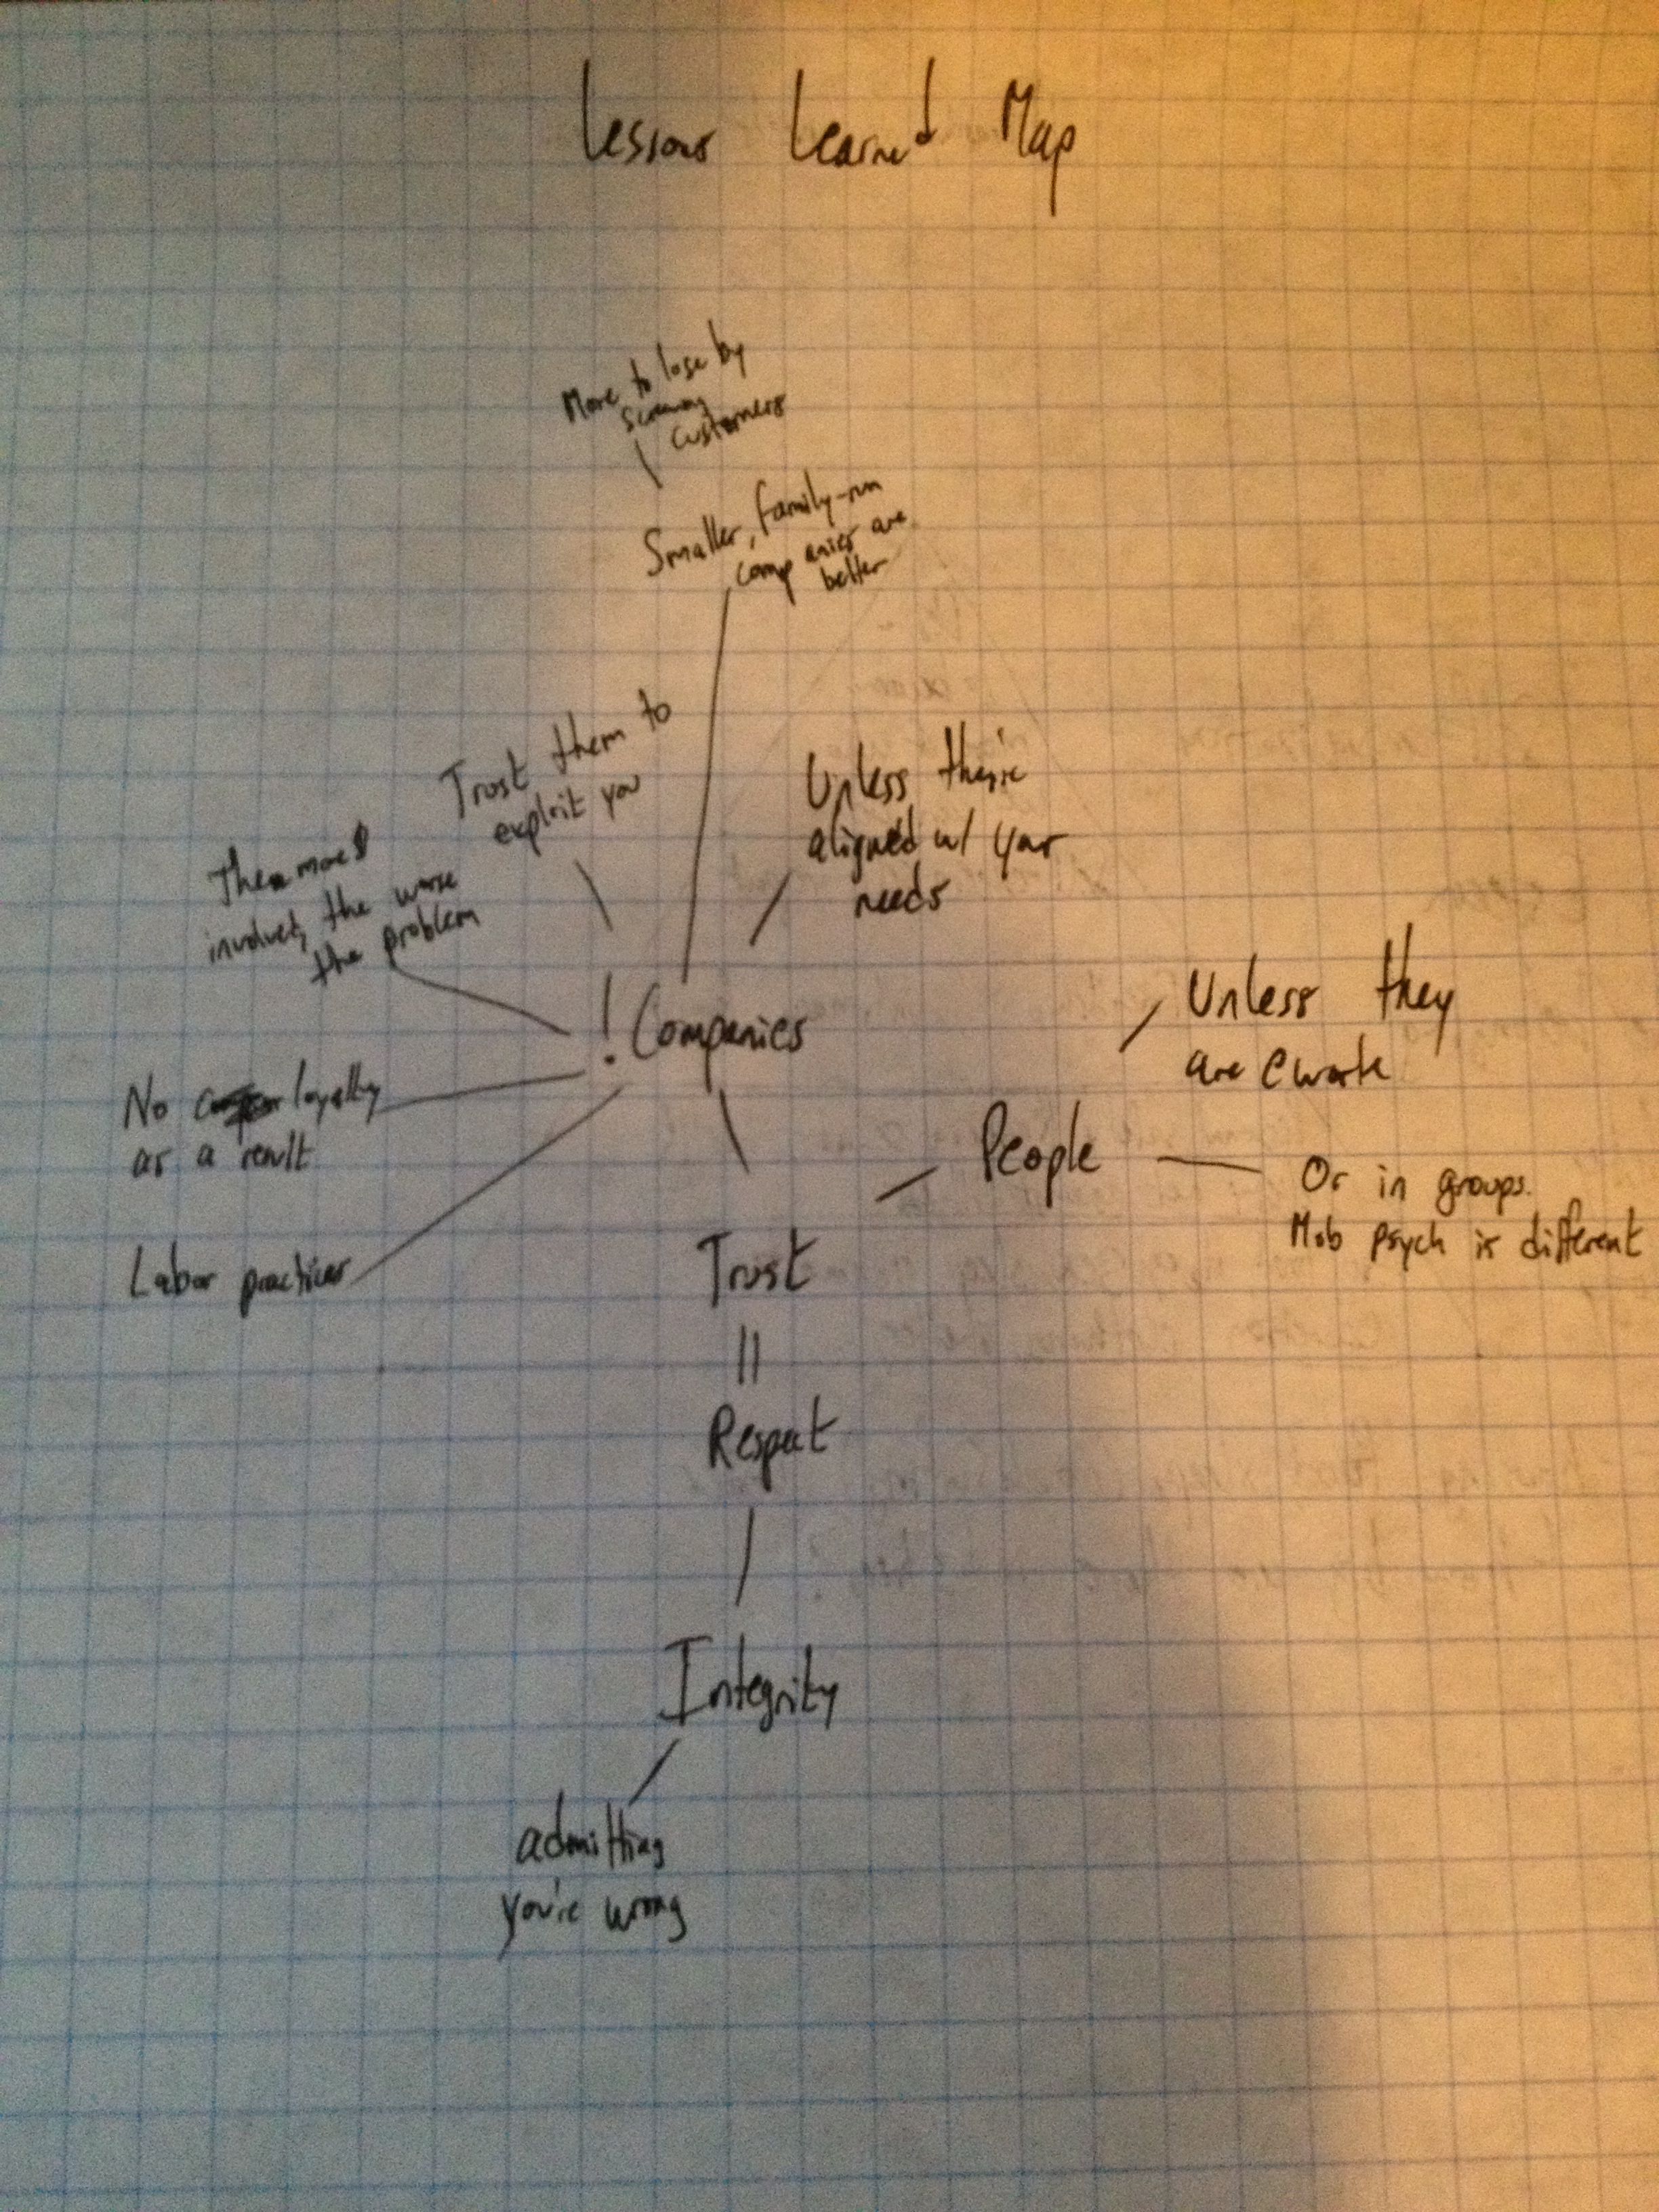 Lessons Learned Map
More to lose by
screwing
customers
Smaller, family-run
companies are
better
Trust them to
exploit you
Unless they're
aligned w/ your
needs
The more $
involved, the worse
the problem
! Companies
Unless they
are @work
No loyalty
as a result
People
Or in groups.
Mob psych is different
Labor practices
Trust
||
Respect
Integrity
admitting
you're wrong